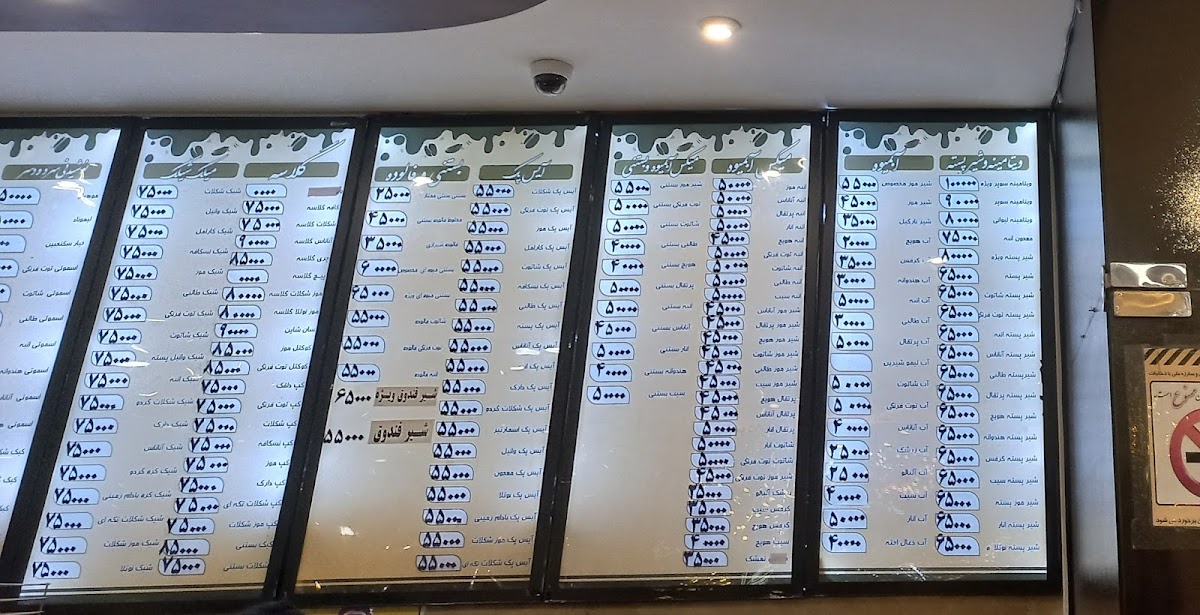 ویتامینه و شیر پسته
ویتامینه سوپر ویژه ۱۰۰۰۰۰
ویتامینه سوپر ۹۰۰۰۰
ویتامینه لیوانی ۸۰۰۰۰
معجون انبه ۷۵۰۰۰
شیر پسته ویژه ۸۰۰۰۰
شیر پسته ۶۵۰۰۰
شیر پسته شاتوت ۶۵۰۰۰
شیر پسته توت فرنگی ۶۵۰۰۰
شیر پسته انبه ۶۵۰۰۰
شیر پسته آناناس ۶۵۰۰۰
شیر پسته طالبی ۶۵۰۰۰
شیر پسته پرتقال ۶۵۰۰۰
شیر پسته هویج ۶۵۰۰۰
شیر پسته هندوانه ۶۵۰۰۰
شیر پسته کرفس ۶۵۰۰۰
شیر پسته سیب ۶۵۰۰۰
شیر موز پسته ۶۵۰۰۰
شیر پسته انار ۶۵۰۰۰
شیر پسته نوتلا ۶۵۰۰۰
آبمیوه
شیر موز مخصوص ۵۵۰۰۰
شیر موز ۴۵۰۰۰
شیر نارگیل ۳۵۰۰۰
آب هویج ۲۰۰۰۰
آب کرفس ۳۵۰۰۰
آب هندوانه ۳۰۰۰۰
آب انبه ۵۰۰۰۰
آب طالبی ۳۰۰۰۰
آب پرتقال ۵۰۰۰۰
آب لیمو شیرین
آب شاتوت ۵۰۰۰۰
آب توت فرنگی ۵۰۰۰۰
آب آناناس ۴۵۰۰۰
آب زرشک ۲۵۰۰۰
آب آلبالو ۲۵۰۰۰
آب سیب ۴۰۰۰۰
آب انار ۵۰۰۰۰
آب ذغال اخته ۴۰۰۰۰
میکس آبمیوه
انبه موز ۵۰۰۰۰
انبه آناناس ۵۰۰۰۰
انبه پرتقال ۵۰۰۰۰
انبه انار ۵۰۰۰۰
انبه هویج ۴۵۰۰۰
انبه توت فرنگی ۵۰۰۰۰
انبه شاتوت ۵۰۰۰۰
انبه طالبی ۵۰۰۰۰
انبه سیب ۵۰۰۰۰
شیر موز آناناس ۴۵۰۰۰
شیر موز پرتقال ۴۵۰۰۰
شیر موز هویج ۴۵۰۰۰
شیر موز شاتوت ۴۵۰۰۰
شیر موز طالبی ۴۵۰۰۰
شیر موز سیب ۴۵۰۰۰
پرتقال هویج ۴۵۰۰۰
پرتقال آناناس ۴۵۰۰۰
پرتقال انار ۵۰۰۰۰
شاتوت انار ۵۰۰۰۰
شاتوت توت فرنگی ۵۰۰۰۰
شیر موز توت فرنگی ۴۵۰۰۰
زرشک آلبالو ۲۵۰۰۰
کرفس سیب ۳۵۰۰۰
کرفس هویج ۳۵۰۰۰
سیب هویج ۴۰۰۰۰
تمشک ۳۵۰۰۰
میکس آبمیوه و بستنی
شیر موز بستنی ۵۵۰۰۰
توت فرنگی بستنی ۵۰۰۰۰
شاتوت بستنی ۵۰۰۰۰
طالبی بستنی ۴۰۰۰۰
هویج بستنی ۴۰۰۰۰
پرتقال بستنی ۵۰۰۰۰
انبه بستنی ۵۰۰۰۰
آناناس بستنی ۴۵۰۰۰
انار بستنی ۵۰۰۰۰
هندوانه بستنی ۴۰۰۰۰
سیب بستنی ۵۰۰۰۰
آیس پک
آیس پک شکلات ۵۵۰۰۰
آیس پک توت فرنگی ۵۵۰۰۰
آیس پک موز ۵۵۰۰۰
آیس پک کارامل ۵۵۰۰۰
آیس پک شاتوت ۵۵۰۰۰
آیس پک نسکافه ۵۵۰۰۰
آیس پک طالبی ۵۵۰۰۰
آیس پک پسته ۵۵۰۰۰
آیس پک آناناس ۵۵۰۰۰
آیس پک ۵۵۰۰۰
آیس پک دارک ۵۵۰۰۰
آیس پک شکلات گردو ۵۵۰۰۰
آیس پک اسمارتیز ۵۵۰۰۰
آیس پک وانیل ۵۵۰۰۰
آیس پک معجون ۵۵۰۰۰
آیس پک نوتلا ۵۵۰۰۰
آیس پک بادام زمینی ۵۵۰۰۰
آیس پک موز شکلات ۵۵۰۰۰
آیس پک شکلات تکه ای ۵۵۰۰۰
بستنی و فالوده
بستنی سنتی ممتاز ۴۵۰۰۰
مخلوط فالوده بستنی ۴۵۰۰۰
فالوده شیرازی ۳۵۰۰۰
بستنی میوه ای مخصوص ۶۰۰۰۰
بستنی میوه ای ویژه ۶۵۰۰۰
شاتوت فالوده ۵۵۰۰۰
توت فرنگی فالوده ۵۵۰۰۰
انبه فالوده ۵۵۰۰۰
شیر فندوق ویژه ۶۵۰۰۰
شیر فندوق ۵۵۰۰۰
گلاسه
۰۰۰۰
کافه گلاسه ۷۵۰۰۰
شکلات گلاسه ۷۵۰۰۰
آناناس گلاسه ۹۰۰۰۰
۸۵۰۰۰
۰۰۰۰
موز شکلات گلاسه ۸۰۰۰۰
موز نوتلا گلاسه ۸۰۰۰۰
سان شاین ۹۰۰۰۰
کوکتل موز ۸۵۰۰۰
کوکتل توت فرنگی ۸۵۰۰۰
کپ دلفک ۷۵۰۰۰
کپ توت فرنگی ۷۵۰۰۰
کپ شکلات ۷۵۰۰۰
کپ نسکافه ۷۵۰۰۰
کپ موز ۷۵۰۰۰
کپ دارک ۷۵۰۰۰
کپ شکلات تکه ای ۷۵۰۰۰
کپ موز شکلات ۷۵۰۰۰
کیک بستنی ۸۵۰۰۰
شکلات بستنی ۷۵۰۰۰
میلک شیک
شیک شکلات ۷۵۰۰۰
شیک وانیل ۷۵۰۰۰
شیک کارامل ۷۵۰۰۰
شیک نسکافه ۷۵۰۰۰
شیک موز ۷۵۰۰۰
شیک طالبی ۷۵۰۰۰
شیک توت فرنگی ۷۵۰۰۰
شیک شاتوت ۷۵۰۰۰
شیک وانیل پسته ۷۵۰۰۰
شیک انبه ۷۵۰۰۰
شیک شکلات گردو ۷۵۰۰۰
شیک دارک ۷۵۰۰۰
شیک آناناس ۷۵۰۰۰
شیک کره گردو ۷۵۰۰۰
شیک کره بادام زمینی ۷۵۰۰۰
شیک شکلات تکه ای ۷۵۰۰۰
شیک موز شکلات ۷۵۰۰۰
شیک نوتلا ۷۵۰۰۰
نوشیدنی سرد و دمنوش
موهیتو
لیموناد
خیار سکنجبین
اسموتی توت فرنگی
اسموتی شاتوت
اسموتی طالبی
اسموتی انبه
اسموتی هندوانه
اسموتی آناناس